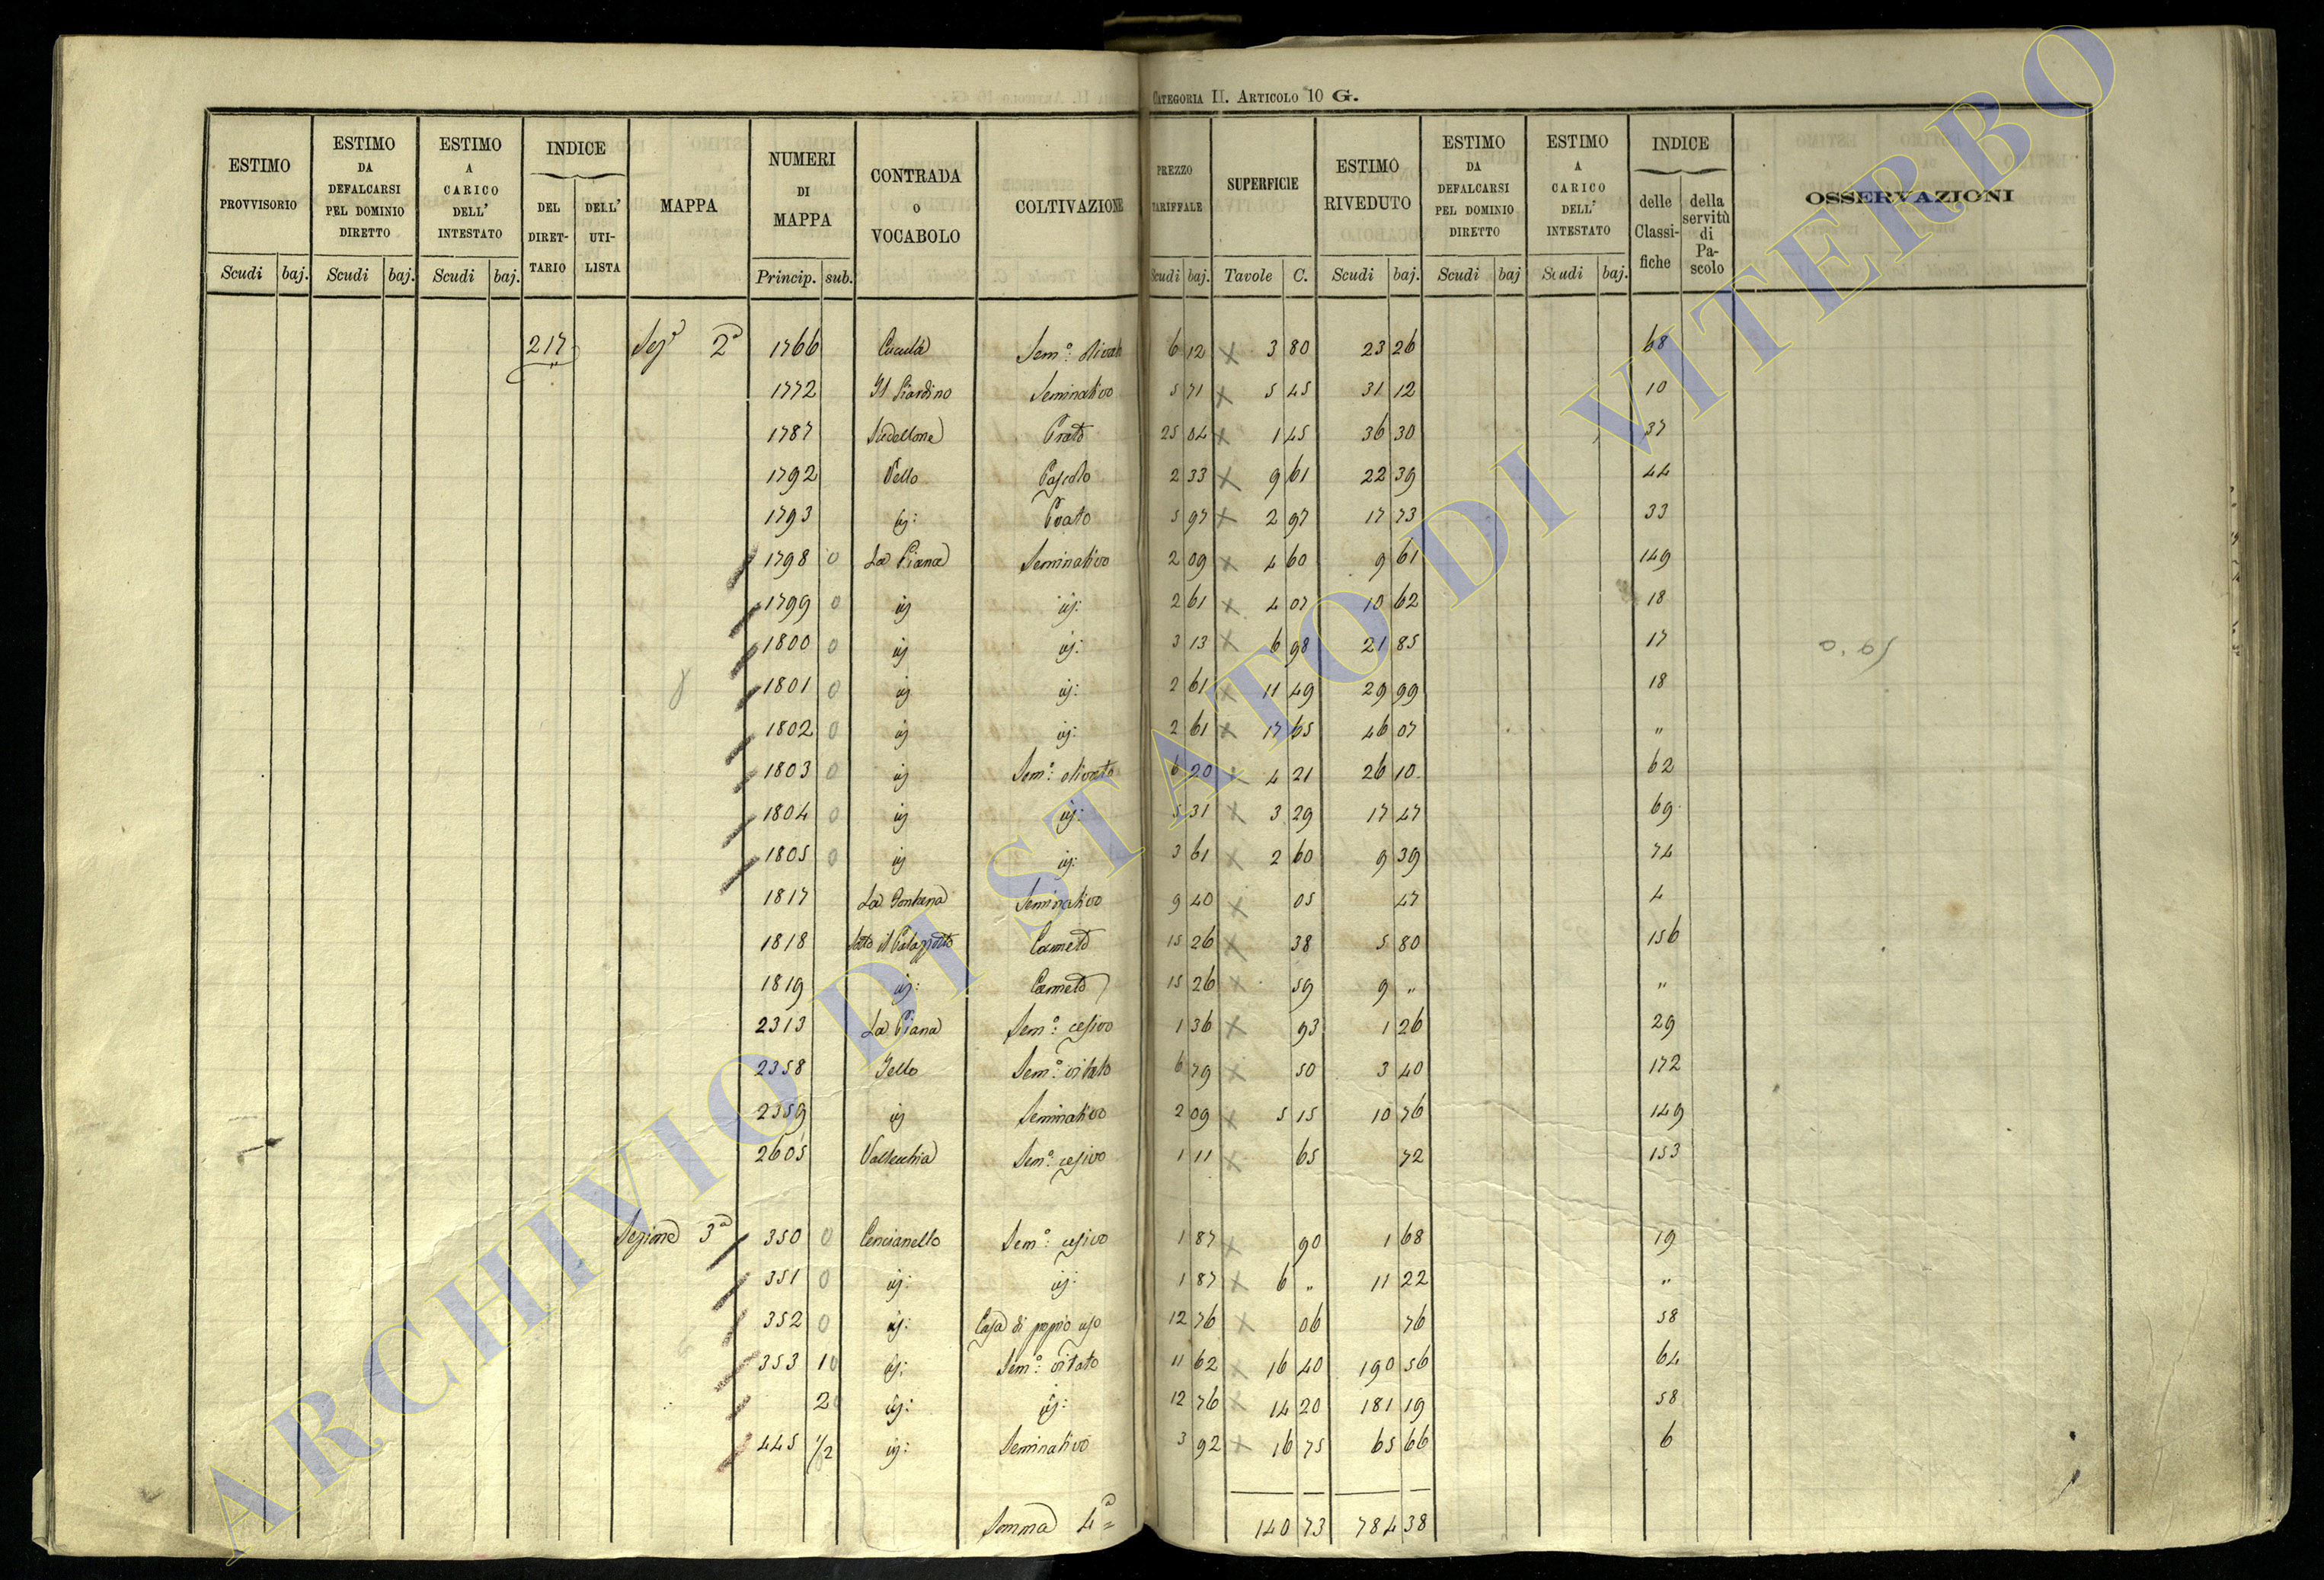 CATEGORIA II. ARTICOLO 10 G.
ESTIMO PROVVISORIO Scudi baj. ESTIMO DA DEFALCARSI PEL DOMINIO DIRETTO Scudi baj. ESTIMO A CARICO DELL' INTESTATO Scudi baj. INDICE DEL DIRET-TARIO DELL' UTI-LISTA MAPPA NUMERI DI MAPPA Princip. sub. CONTRADA o VOCABOLO COLTIVAZIONE PREZZO TARIFFALE Scudi baj. SUPERFICIE Tavole C. ESTIMO RIVEDUTO Scudi baj. ESTIMO DA DEFALCARSI PEL DOMINIO DIRETTO Scudi baj ESTIMO A CARICO DELL' INTESTATO Scudi baj. INDICE delle Classi-fiche della servitù di Pa-scolo OSSERVAZIONI
217 Sez.e 2a 1766 Cuculà Sem.o olivato 6 12 x 3 80 23 26 68
1772 Il Giardino Seminativo 5 71 x 5 45 31 12 10
1787 Prato 25 04 x 1 45 36 30 37
1792 Vello Pascolo 2 33 x 9 61 22 39 44
1793 id: Prato 5 97 x 2 97 17 73 33
1798 0 La Piana Seminativo 2 09 x 4 60 9 61 149
1799 0 id id: 2 61 x 4 07 10 62 18
1800 0 id id: 3 13 x 6 98 21 85 17
1801 0 id id: 2 61 x 11 49 29 99 18
1802 0 id id: 2 61 x 17 65 46 07 "
1803 0 id Sem.o olivato 6 20 x 4 21 26 10 62
1804 0 id id: 5 31 x 3 29 17 47 69
1805 0 id id: 3 61 x 2 60 9 39 74
1817 La Fontana Seminativo 9 40 x 05 47 4
1818 Sotto il Palazzetto Canneto 15 26 x 38 5 80 156
1819 id: Canneto 15 26 x 59 9 " "
2313 La Piana Sem.o cesivo 1 36 x 93 1 26 29
2358 Tello Sem.o vitato 6 79 x 50 3 40 172
2359 id Seminativo 2 09 x 5 15 10 76 149
2605 Vallecchia Sem.o cesivo 1 11 x 65 72 153
Sezione 3a 350 0 Cencianello Sem.o cesivo 1 87 x 90 1 68 19
351 0 id: id: 1 87 x 6 " 11 22 "
352 0 id: Casa di proprio uso 12 76 x 06 76 58
353 1 0 id: Sem.o vitato 11 62 x 16 40 190 56 64
2 id: id: 12 76 x 14 20 181 19 58
445 1/2 id: Seminativo 3 92 x 16 75 65 66 6
Somma 4a 140 73 784 38
ARCHIVIO DI STATO DI VITERBO